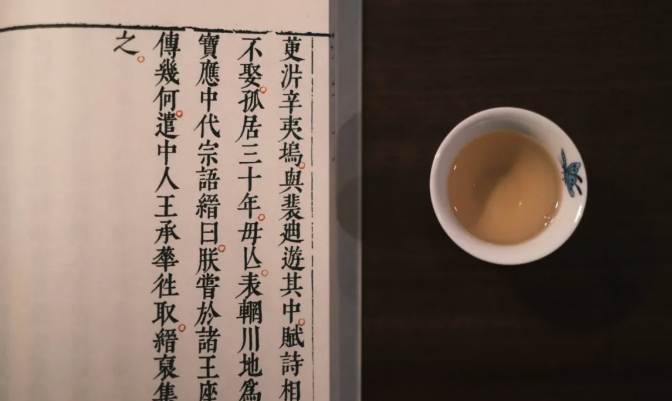 茰沜辛夷塢與裴廸遊其中賦詩相
不娶孤居三十年母亾表輞川地爲
寶應中代宗語縉曰朕嘗於諸王座
傳幾何遣中人王承華徃取縉裒集
之